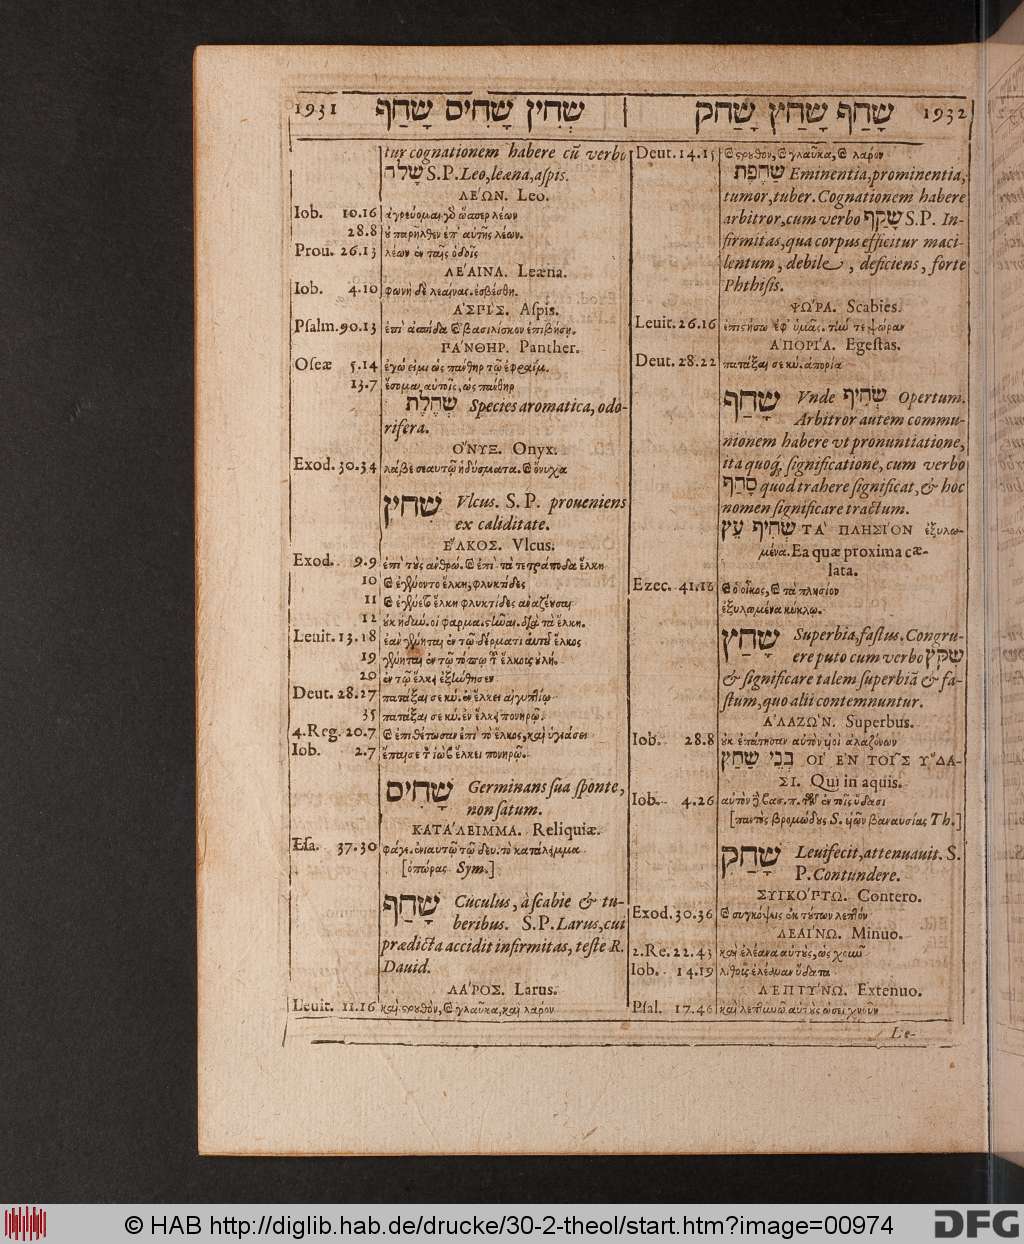 1931 שְׁחִין שָׁחִים שָׁחַף
tur cognationem habere cũ verbo
שָׁלַה S.P. Leo, leæna, aſpis.
ΛΕΏΝ. Leo.
Iob. 10.16 ἀγρεύομαι γὸ ὥσπερ λέων
28.8 ὐ παρῆλθεν ἐπ' αὐτῆς λέων.
Prou. 26.13 λέων ἐν ταῖς ὁδοῖς
ΛΕ´ΑΙΝΑ. Leæna.
Iob. 4.10 φωνὴ δὲ λεαίνας. ἐσβέσθη.
ἈΣΠΙ´Σ. Aſpis.
Pſalm. 90.13 ἐπὶ ἀσπίδα ϗ βασιλίσκον ἐπιβήση.
ΠΆΝΘΗΡ. Panther.
Oſeæ 5.14 ἐγώ εἰμι ὡς πάνθηρ τῷ ἐφραΐμ.
13.7 ἔσομαι αὐτοῖς, ὡς πάνθηρ
שְׁחֶלֶת Species aromatica, odo-
rifera.
Ὄ´ΝΥΞ. Onyx.
Exod. 30.34 λάβε σεαυτῷ ἡδύσματα. ϗ ὄνυχα
שְׁחִין Vlcus. S. P. proueniens
ex caliditate.
ἝΛΚΟΣ. Vlcus.
Exod. 9.9 ἐπὶ τὺς ἀνθρώ. ϗ ἐπὶ τὰ τετράποδα ἕλκη
10 ϗ ἐγένοντο ἕλκη, φλυκτίδες
11 ϗ ἐγένετο ἕλκη φλυκτίδες ἀναζέουσαι
12
Leuit. 13.18 ἐὰν γένηται ἐν τῷ δέρματι αὐτοῦ ἕλκος
19
20 ἐν τῷ ἕλκει ἐξήνθησεν
Deut. 28.27 πατάξαι σε κύ. ἐν ἕλκει αἰγυπτίῳ
35 πατάξαι σε κύ. ἐν ἕλκει πονηρῷ.
4. Reg. 20.7 ϗ ἐπιθέτωσαν ἐπὶ τὸ ἕλκος, καὶ ὑγιάσει
Iob. 2.7 ἔπαισε τ̀ ἰὼβ ἕλκει πονηρῷ.
שָׁחִים Germinans ſua ſponte,
non ſatum.
ΚΑΤΆΛΕΙΜΜΑ. Reliquiæ.
Eſa. 37.30 φάγε. ἐνιαυτῷ τῷ δευ. τὸ κατάλειμμα
[ὀπώρας Sym.]
שָׁחַף Cuculus, à ſcabie & tu-
beribus. S.P. Larus, cui
prædicta accidit infirmitas, teſte R.
Dauid.
ΛΆΡΟΣ. Larus.
Leuit. 11.16 καὶ ςρουθὸν, ϗ γλαῦκα, καὶ λάρον
שָׁחַף שָׁחַץ שָׁחַק 1932
Deut. 14.15 ϗ ςρουθὸν, ϗ γλαῦκα, ϗ λάρον
שַׁחֶפֶת Eminentia, prominentia,
tumor, tuber. Cognationem habere
arbitror, cum verbo שָׁקַף S.P. In-
firmitas, qua corpus efficitur maci-
lentum, debile, deficiens, forte
Phthiſis.
ΨΏΡΑ. Scabies.
Leuit. 26.16 ἐπιςήσω ἐφ' ὑμᾶς. τὴν τε ψώραν
ἈΠΟΡΊΑ. Egeſtas.
Deut. 28.22 πατάξαι σε κύ. ἀπορίᾳ
שָׁחַף Vnde שְׂחִיף Opertum.
Arbitror autem commu-
nionem habere vt pronuntiatione,
ita quoq; ſignificatione, cum verbo
סָחַף quod trahere ſignificat, & hoc
nomen ſignificare tractum.
שְׂחִיף עֵץ ΤᾺ ΠΛΗΣΊΟΝ ἐξυλω-
μένα. Ea quæ proxima cæ-
lata.
Ezec. 41.16 ϗ ὁ οἶκος, ϗ τὰ πλησίον
ἐξυλωμένα κύκλῳ.
שָׁחַץ Superbia, faſtus. Congru-
ere puto cum verbo שקץ
& ſignificare talem ſuperbiã & fa-
ſtum, quo alii contemnuntur.
ἈΛΑΖΏΝ. Superbus.
Iob. 28.8 ὐκ ἐπάτησαν αὐτὸν υἱοὶ ἀλαζόνων
בְנֵי שַׁחַץ ΟἹ ἘΝ ΤΟΙ͂Σ Ὕ´ΔΑ-
ΣΙ. Qui in aquis.
Iob. 41.26
שָׁחַק Leuifecit, attenuauit. S.
P. Contundere.
ΣΥΓΚΌΠΤΩ. Contero.
Exod. 30.36 ϗ συγκόψεις ἐκ τύτων λεπτὸν
ΛΕΑΊΝΩ. Minuo.
2. Re. 22.43 καὶ ἐλέανα αὐτὺς, ὡς χοῦν
Iob. 14.19 λίθους ἐλέαναν ὕδατα
ΛΕΠΤΎΝΩ. Extenuo.
Pſal. 17.46 καὶ λεπτυνῶ αὐτὺς ὡσεὶ χνοῦν
Le-
© HAB http://diglib.hab.de/drucke/30-2-theol/start.htm?image=00974
DFG